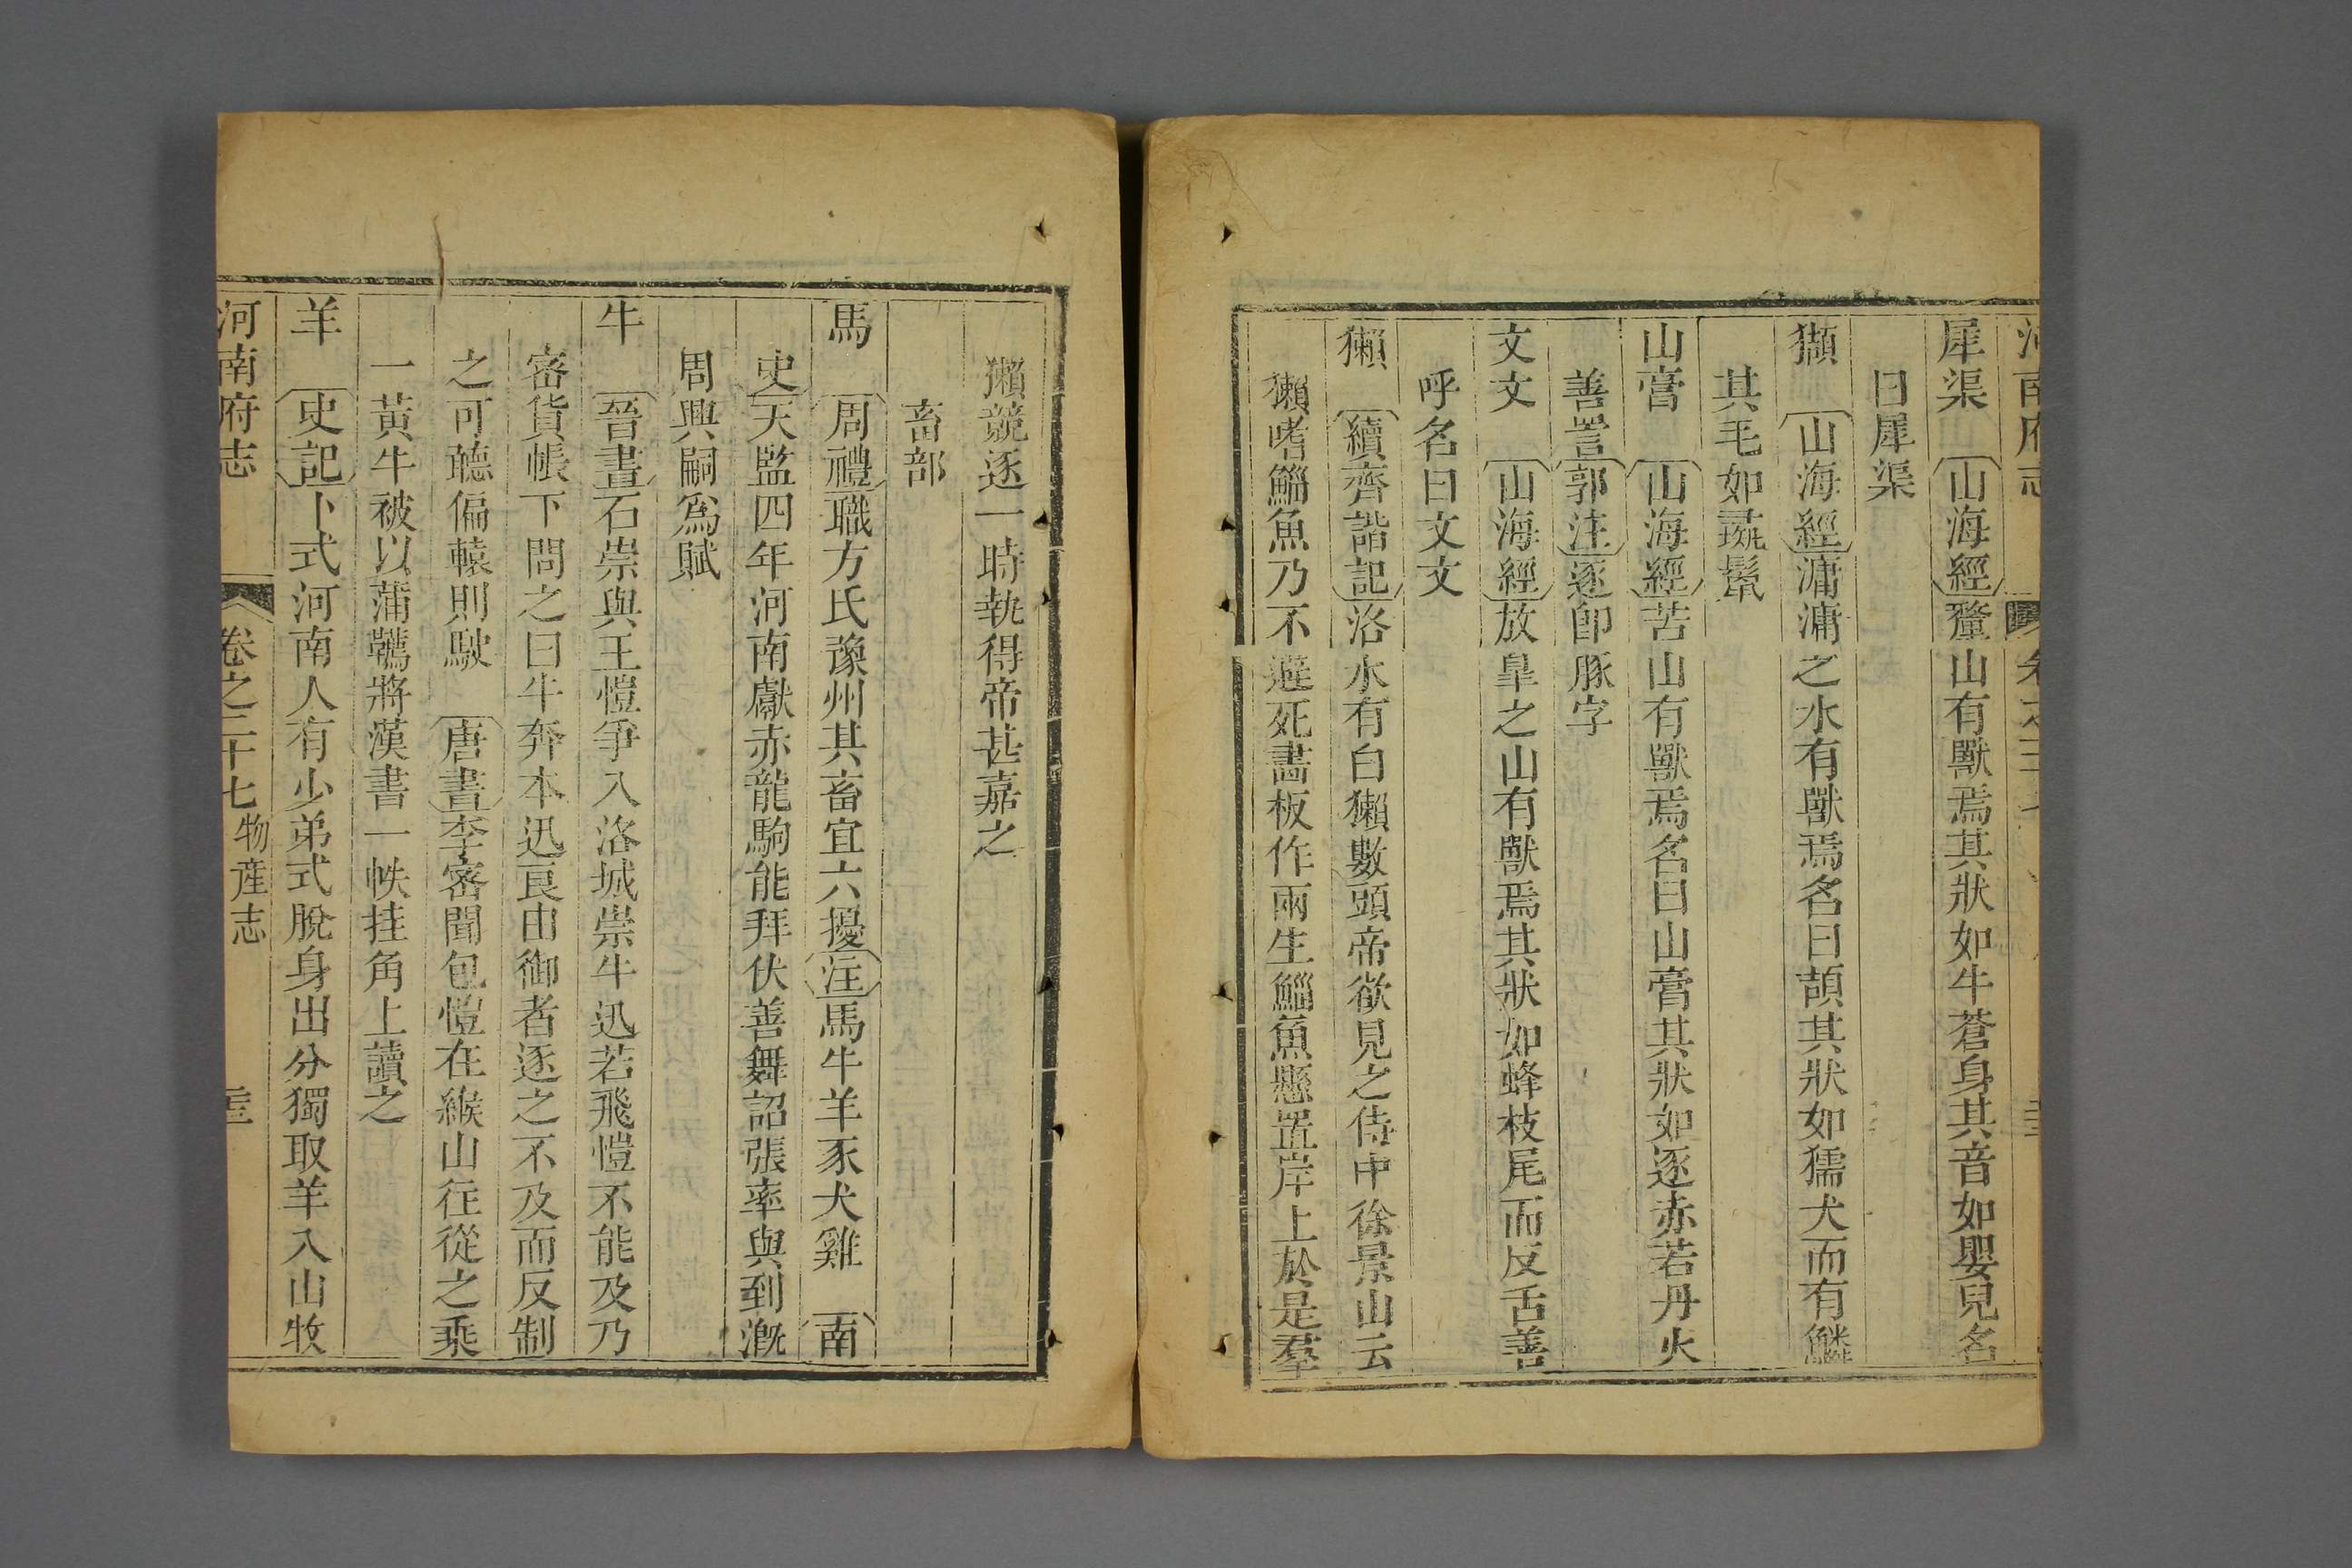 河南府志
犀渠 山海經釐山有獸焉其狀如牛蒼身其音如嬰兒名
曰犀渠
獺 山海經滽滽之水有獸焉名曰頡其狀如獳犬而有鱗
其毛如彘鬣
山膏 山海經苦山有獸焉名曰山膏其狀如逐赤若丹火
善詈郭注逐卽豚字
文文 山海經放臯之山有獸焉其狀如蜂枝尾而反舌善
呼名曰文文
獺 續齊諧記洛水有白獺數頭帝欲見之侍中徐景山云
獺嗜鯔魚乃不避死畵板作兩生鯔魚懸置岸上於是羣
獺競逐一時執得帝甚嘉之
畜部
馬 周禮職方氏豫州其畜宜六擾注馬牛羊豕犬雞 南
史天監四年河南獻赤龍駒能拜伏善舞詔張率與到溉
周興嗣爲賦
牛 晉書石崇與王愷爭入洛城崇牛迅若飛愷不能及乃
密貨帳下問之曰牛奔本迅良由御者逐之不及而反制
之可聽偏轅則駛 唐書李密聞包愷在緱山往從之乘
一黃牛被以蒲韉將漢書一帙挂角上讀之
羊 史記卜式河南人有少弟式脫身出分獨取羊入山牧
河南府志 卷之二十七物產志